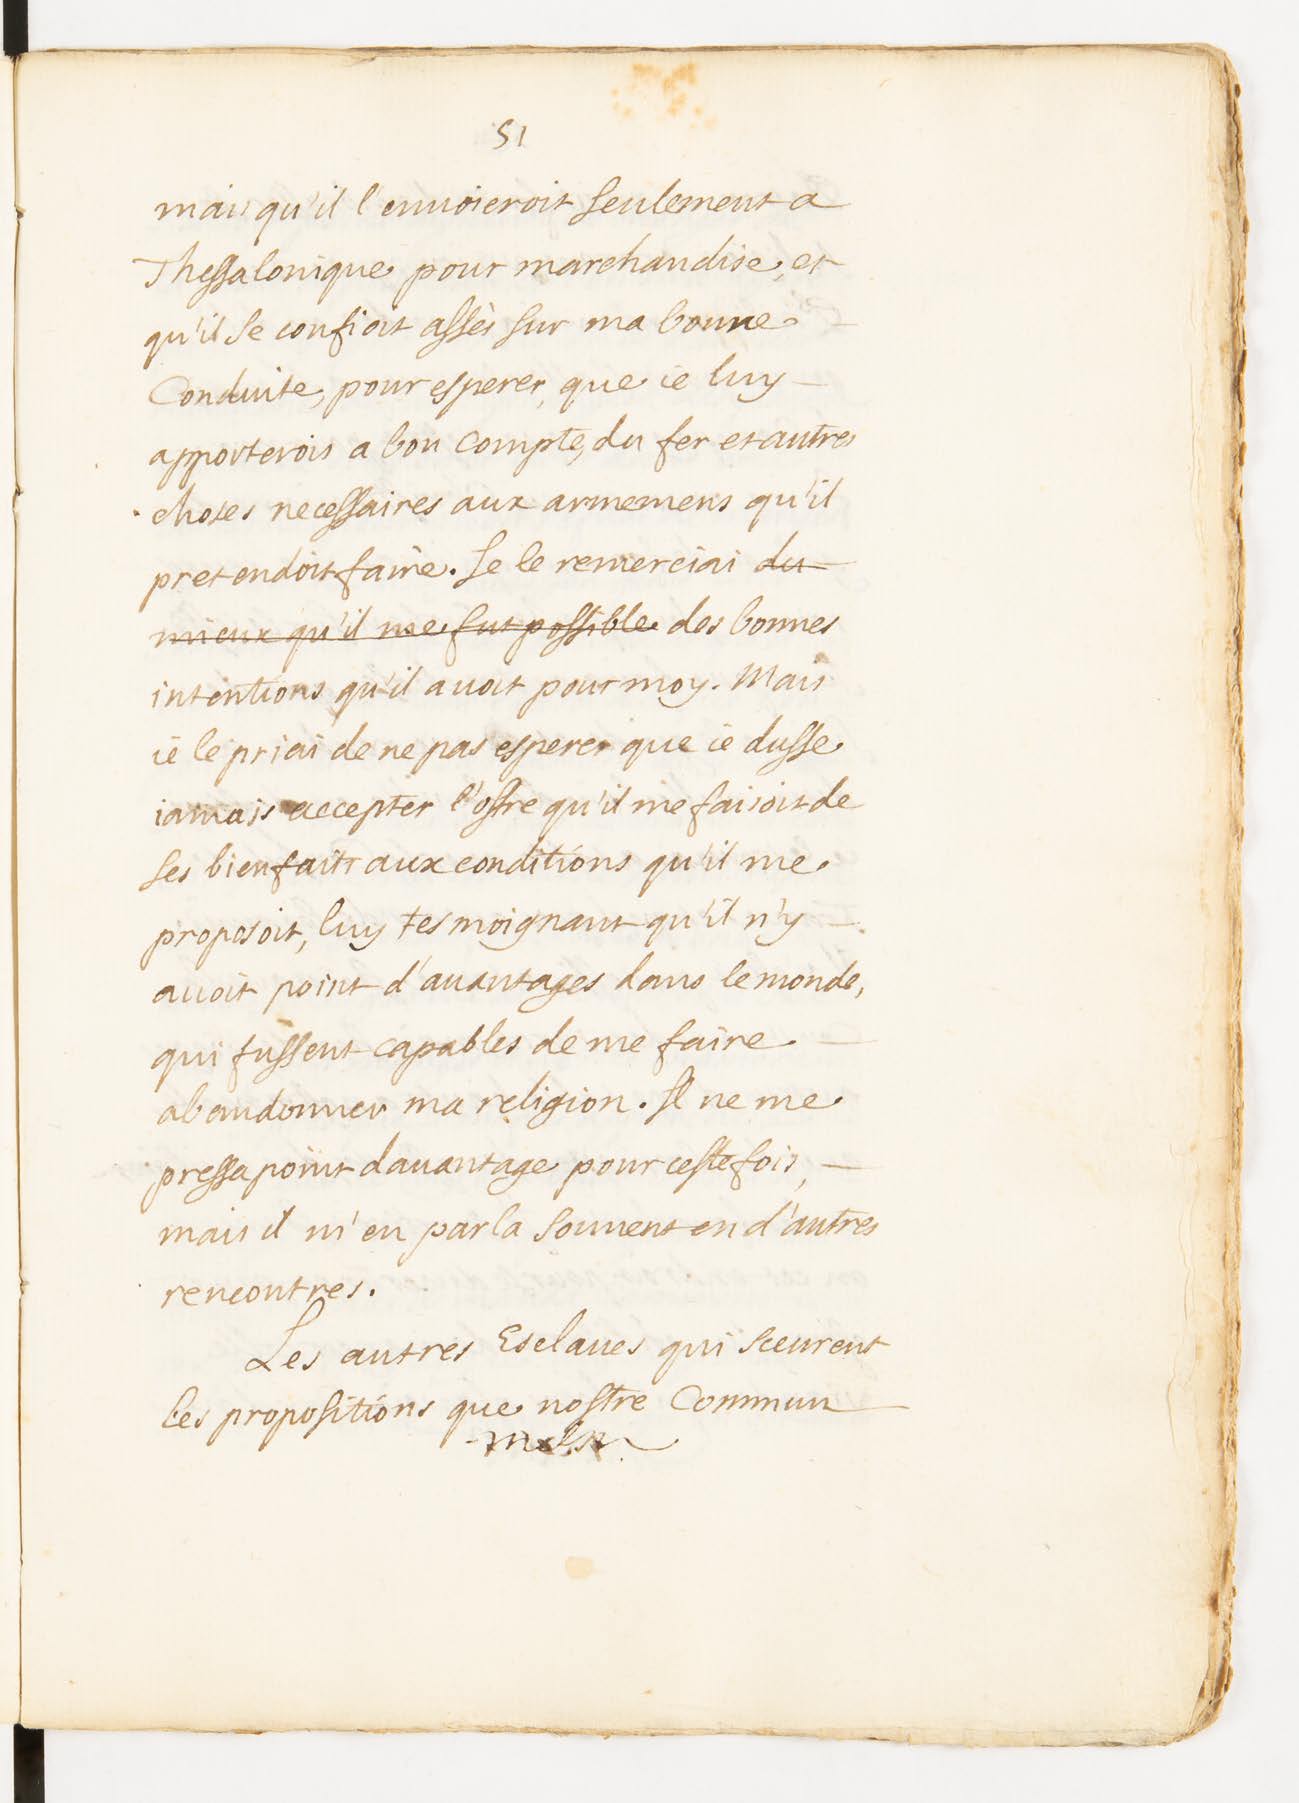 51
mais qu'il l'enuoieroit seulement a
Thessalonique pour marchandise, et
qu'il se confioit assès sur ma bonne
Conduite, pour esperer, que ie luy
apporterois a bon compte, du fer et autres
choses necessaires aux armemens qu'il
pretendoit faire. Je le remerciai du
mieux qu'il me fut possible des bonnes
intentions qu'il auoit pour moy. Mais
ie le priai de ne pas esperer que ie dusse
iamais accepter l'offre qu'il me faisoit de
ses bienfaits aux conditions qu'il me
proposoit, luy tesmoignant qu'il n'y
auoit point d'auantages dans le monde,
qui fussent capables de me faire
abandonner ma religion. Il ne me
pressa point dauantage pour ceste fois,
mais il m'en parla souuent en d'autres
rencontres.
Les autres Esclaues qui sceurent
les propositions que nostre Commun